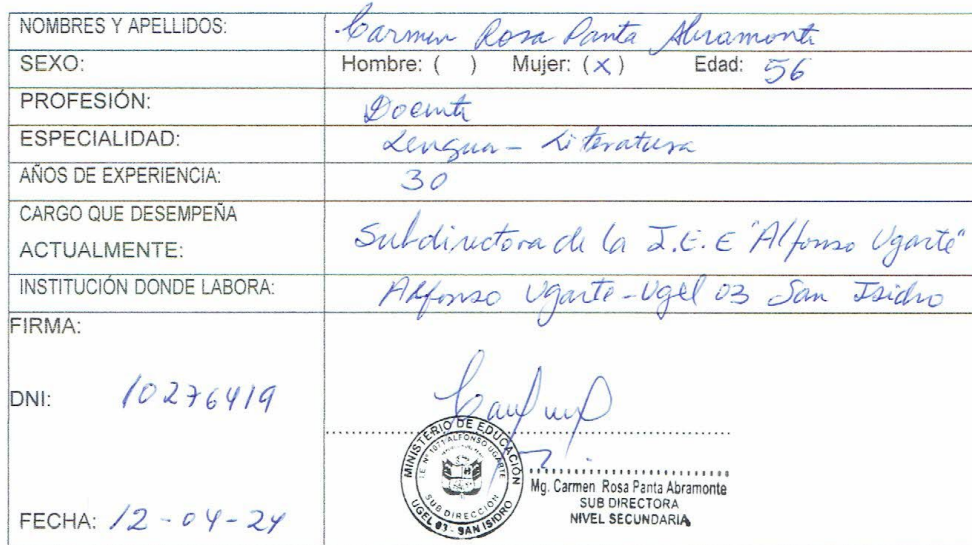 NOMBRES Y APELLIDOS: Carmen Rosa Panta Abramonte
SEXO: Hombre: ( ) Mujer: (x) Edad: 56
PROFESIÓN: Docente
ESPECIALIDAD: Lengua - Literatura
AÑOS DE EXPERIENCIA: 30
CARGO QUE DESEMPEÑA
ACTUALMENTE: Subdirectora de la I.E.E "Alfonso Ugarte"
INSTITUCIÓN DONDE LABORA: Alfonso Ugarte - Ugel 03 San Isidro
FIRMA:
DNI: 10276419
MINISTERIO DE EDUCACIÓN
I.E. N° 1071 ALFONSO UGARTE
SUB DIRECCIÓN
UGEL 03 - SAN ISIDRO
Mg. Carmen Rosa Panta Abramonte
SUB DIRECTORA
NIVEL SECUNDARIA
FECHA: 12-04-24